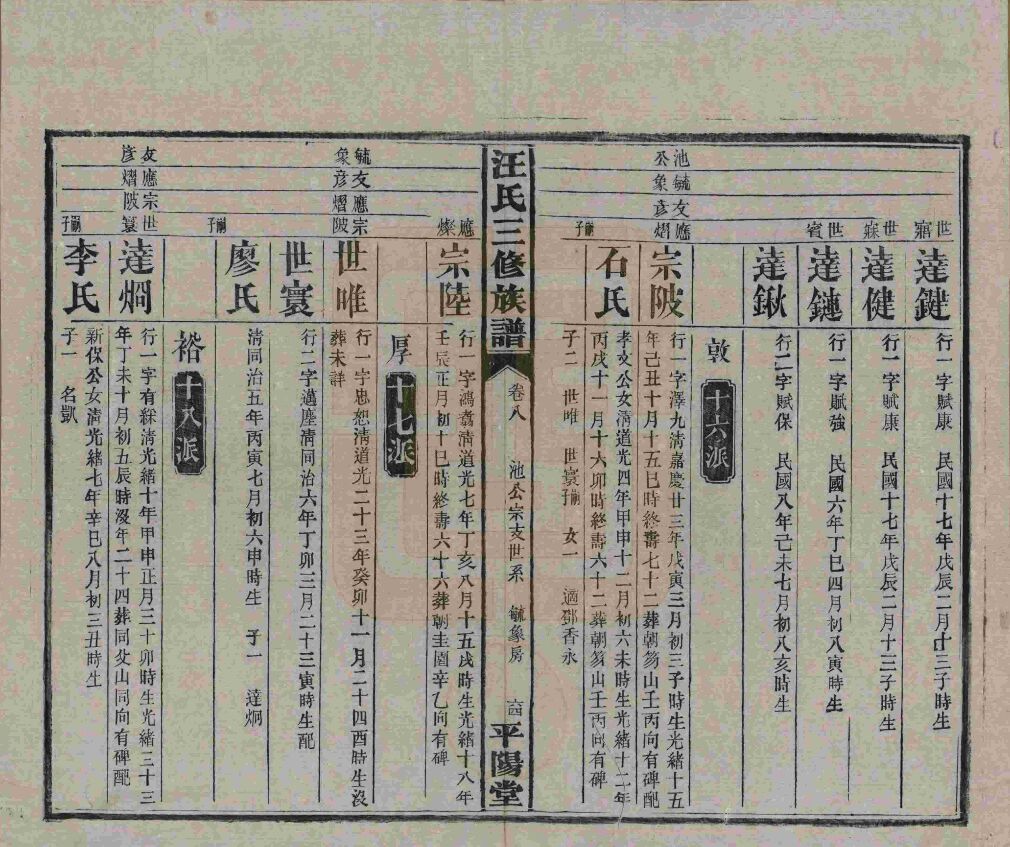 世寤
達鍵
行一字賦康　民國十七年戊辰二月十三子時生
世寐
達健
行一字賦康　民國十七年戊辰二月十三子時生
世賓
達鏈
行一字賦強　民國六年丁巳四月初八寅時生
達鍬
行二字賦保　民國八年己未七月初八亥時生
敦
十六派
池公
毓象
友彥
應熠
宗陂
行一字澤九清嘉慶廿三年戊寅三月初三子時生光緒十五
年己丑十月十五巳時終壽七十二葬朝笏山壬丙向有碑配
嗣子
石氏
孝文公女清道光四年甲申十二月初六未時生光緒十二年
丙戌十一月十六卯時終壽六十二葬朝笏山壬丙向有碑
子二　世唯　世寰嗣子　女一　適鄧香永
汪氏三修族譜
卷八　池公宗支世系　毓象房　六四
平陽堂
應燦
宗陸
行一字鴻翥清道光七年丁亥八月十五戌時生光緒十八年
壬辰正月初十巳時終壽六十六葬朝圭園辛乙向有碑
厚
十七派
毓象
友彥
應熠
宗陂
世唯
行一字忠恕清道光二十三年癸卯十一月二十四酉時生沒
葬未詳
世寰
行二字邁塵清同治六年丁卯三月二十三寅時生配
嗣子
廖氏
清同治五年丙寅七月初六申時生　子一　達炯
裕
十八派
友彥
應熠
宗陂
世寰
達炯
行一字有綵清光緒十年甲申正月三十卯時生光緒三十三
年丁未十月初五辰時沒年二十四葬同父山同向有碑配
嗣子
李氏
新保公女清光緒七年辛巳八月初三丑時生
子一　名凱